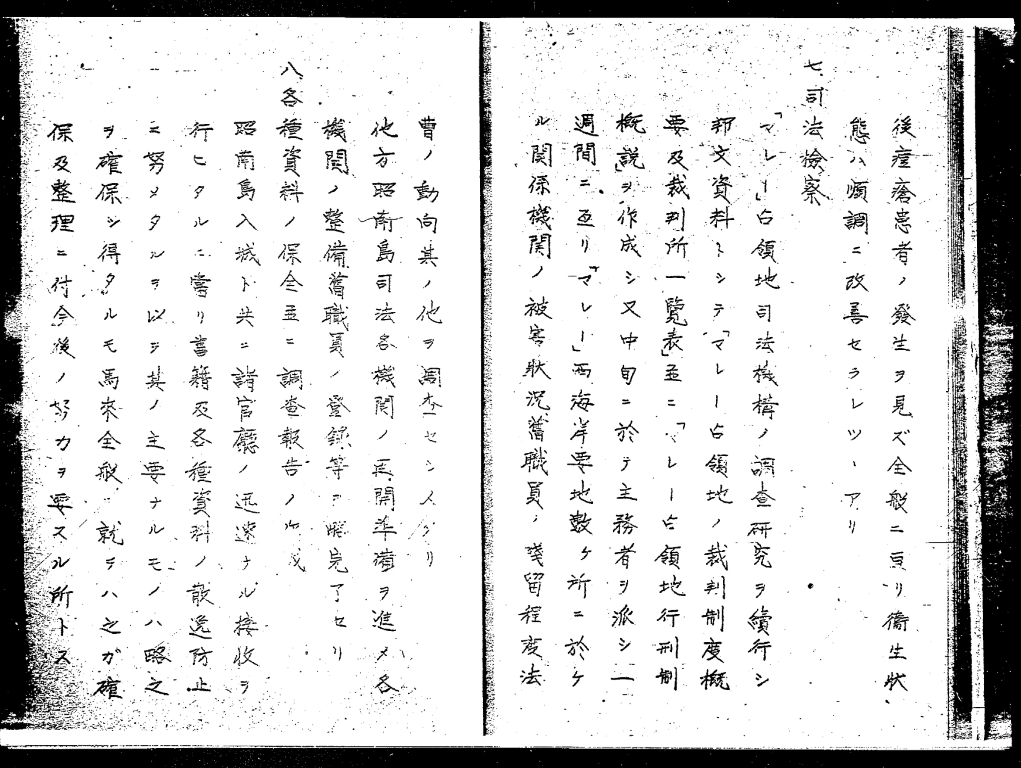 後痘瘡患者ノ發生ヲ見ズ全般ニ亘リ衛生狀
態ハ順調ニ改善セラレツヽアリ
七、司法檢察
「マレー」占領地司法機構ノ調査研究ヲ續行シ
邦文資料トシテ「マレー占領地ノ裁判制度概
要及裁判所一覽表」並ニ「マレー占領地行刑制
概說」ヲ作成シ又中旬ニ於テ主務者ヲ派シ一
週間ニ亘リ「マレー」西海岸要地數ケ所ニ於ケ
ル關係機關ノ被害狀況舊職員ノ殘留程度法
曹ノ動向其ノ他ヲ調査セシメタリ
他方昭南島司法各機關ノ再開準備ヲ進メ各
機關ノ整備舊職員ノ登錄等ヲ完了セリ
八各種資料ノ保全並ニ調查報告ノ作成
昭南島入城ト共ニ諸官廳ノ迅速ナル接收ヲ
行ヒタルニ當リ書籍及各種資料ノ散逸防止
ニ努メタルヲ以テ其ノ主要ナルモノハ略之
ヲ確保シ得タルモ馬來全般ニ就テハ之ガ確
保及整理ニ付今後ノ努力ヲ要スル所トス